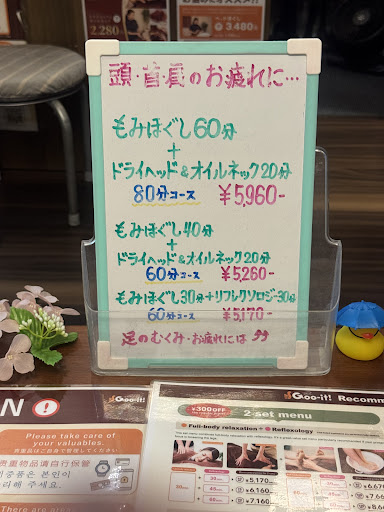 2,280
¥3,480
頭・首・肩のお疲れに…
もみほぐし60分
+
ドライヘッド&オイルネック20分
80分コース ¥5,960-
もみほぐし40分
+
ドライヘッド&オイルネック20分
60分コース ¥5,260-
もみほぐし30分+リフレクソロジー30分
60分コース ¥5,170-
足のむくみ・お疲れには
Goo-it!
N
Please take care of
your valuables.
貴重物品請自行保管
There are area
Goo-it! Recomm
¥300OFF
2-set menu
Full-body relaxation + Reflexology
¥5,170
¥6,160
¥7,160